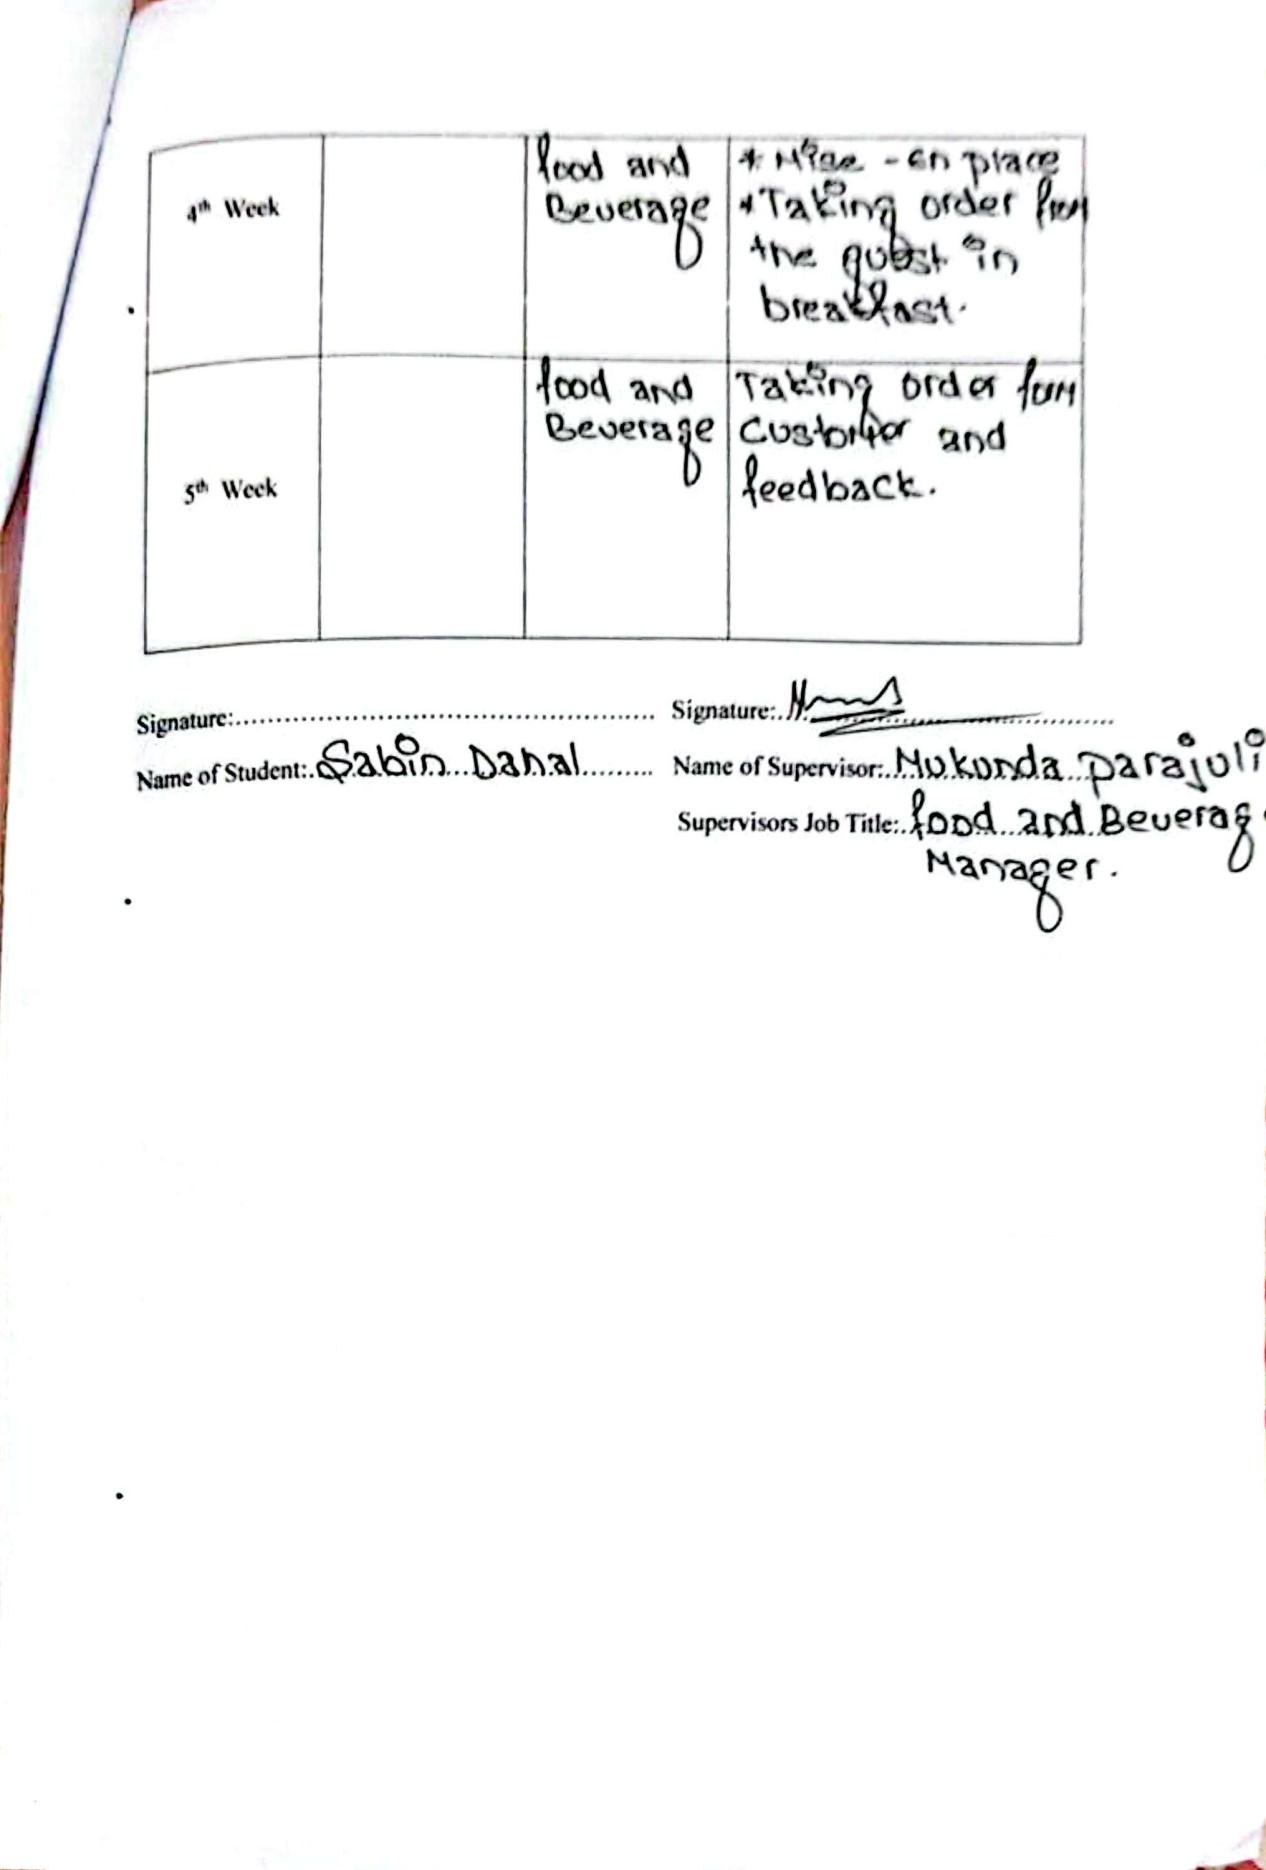 4th Week
food and
Beverage
* Mise - en place
* Taking order from
the guest in
breakfast.
5th Week
food and
Beverage
Taking order form
Customer and
feedback.
Signature:
Signature:
Name of Student: Sabin Dahal
Name of Supervisor: Mukunda parajuli
Supervisors Job Title: food and Beverage
Manager.